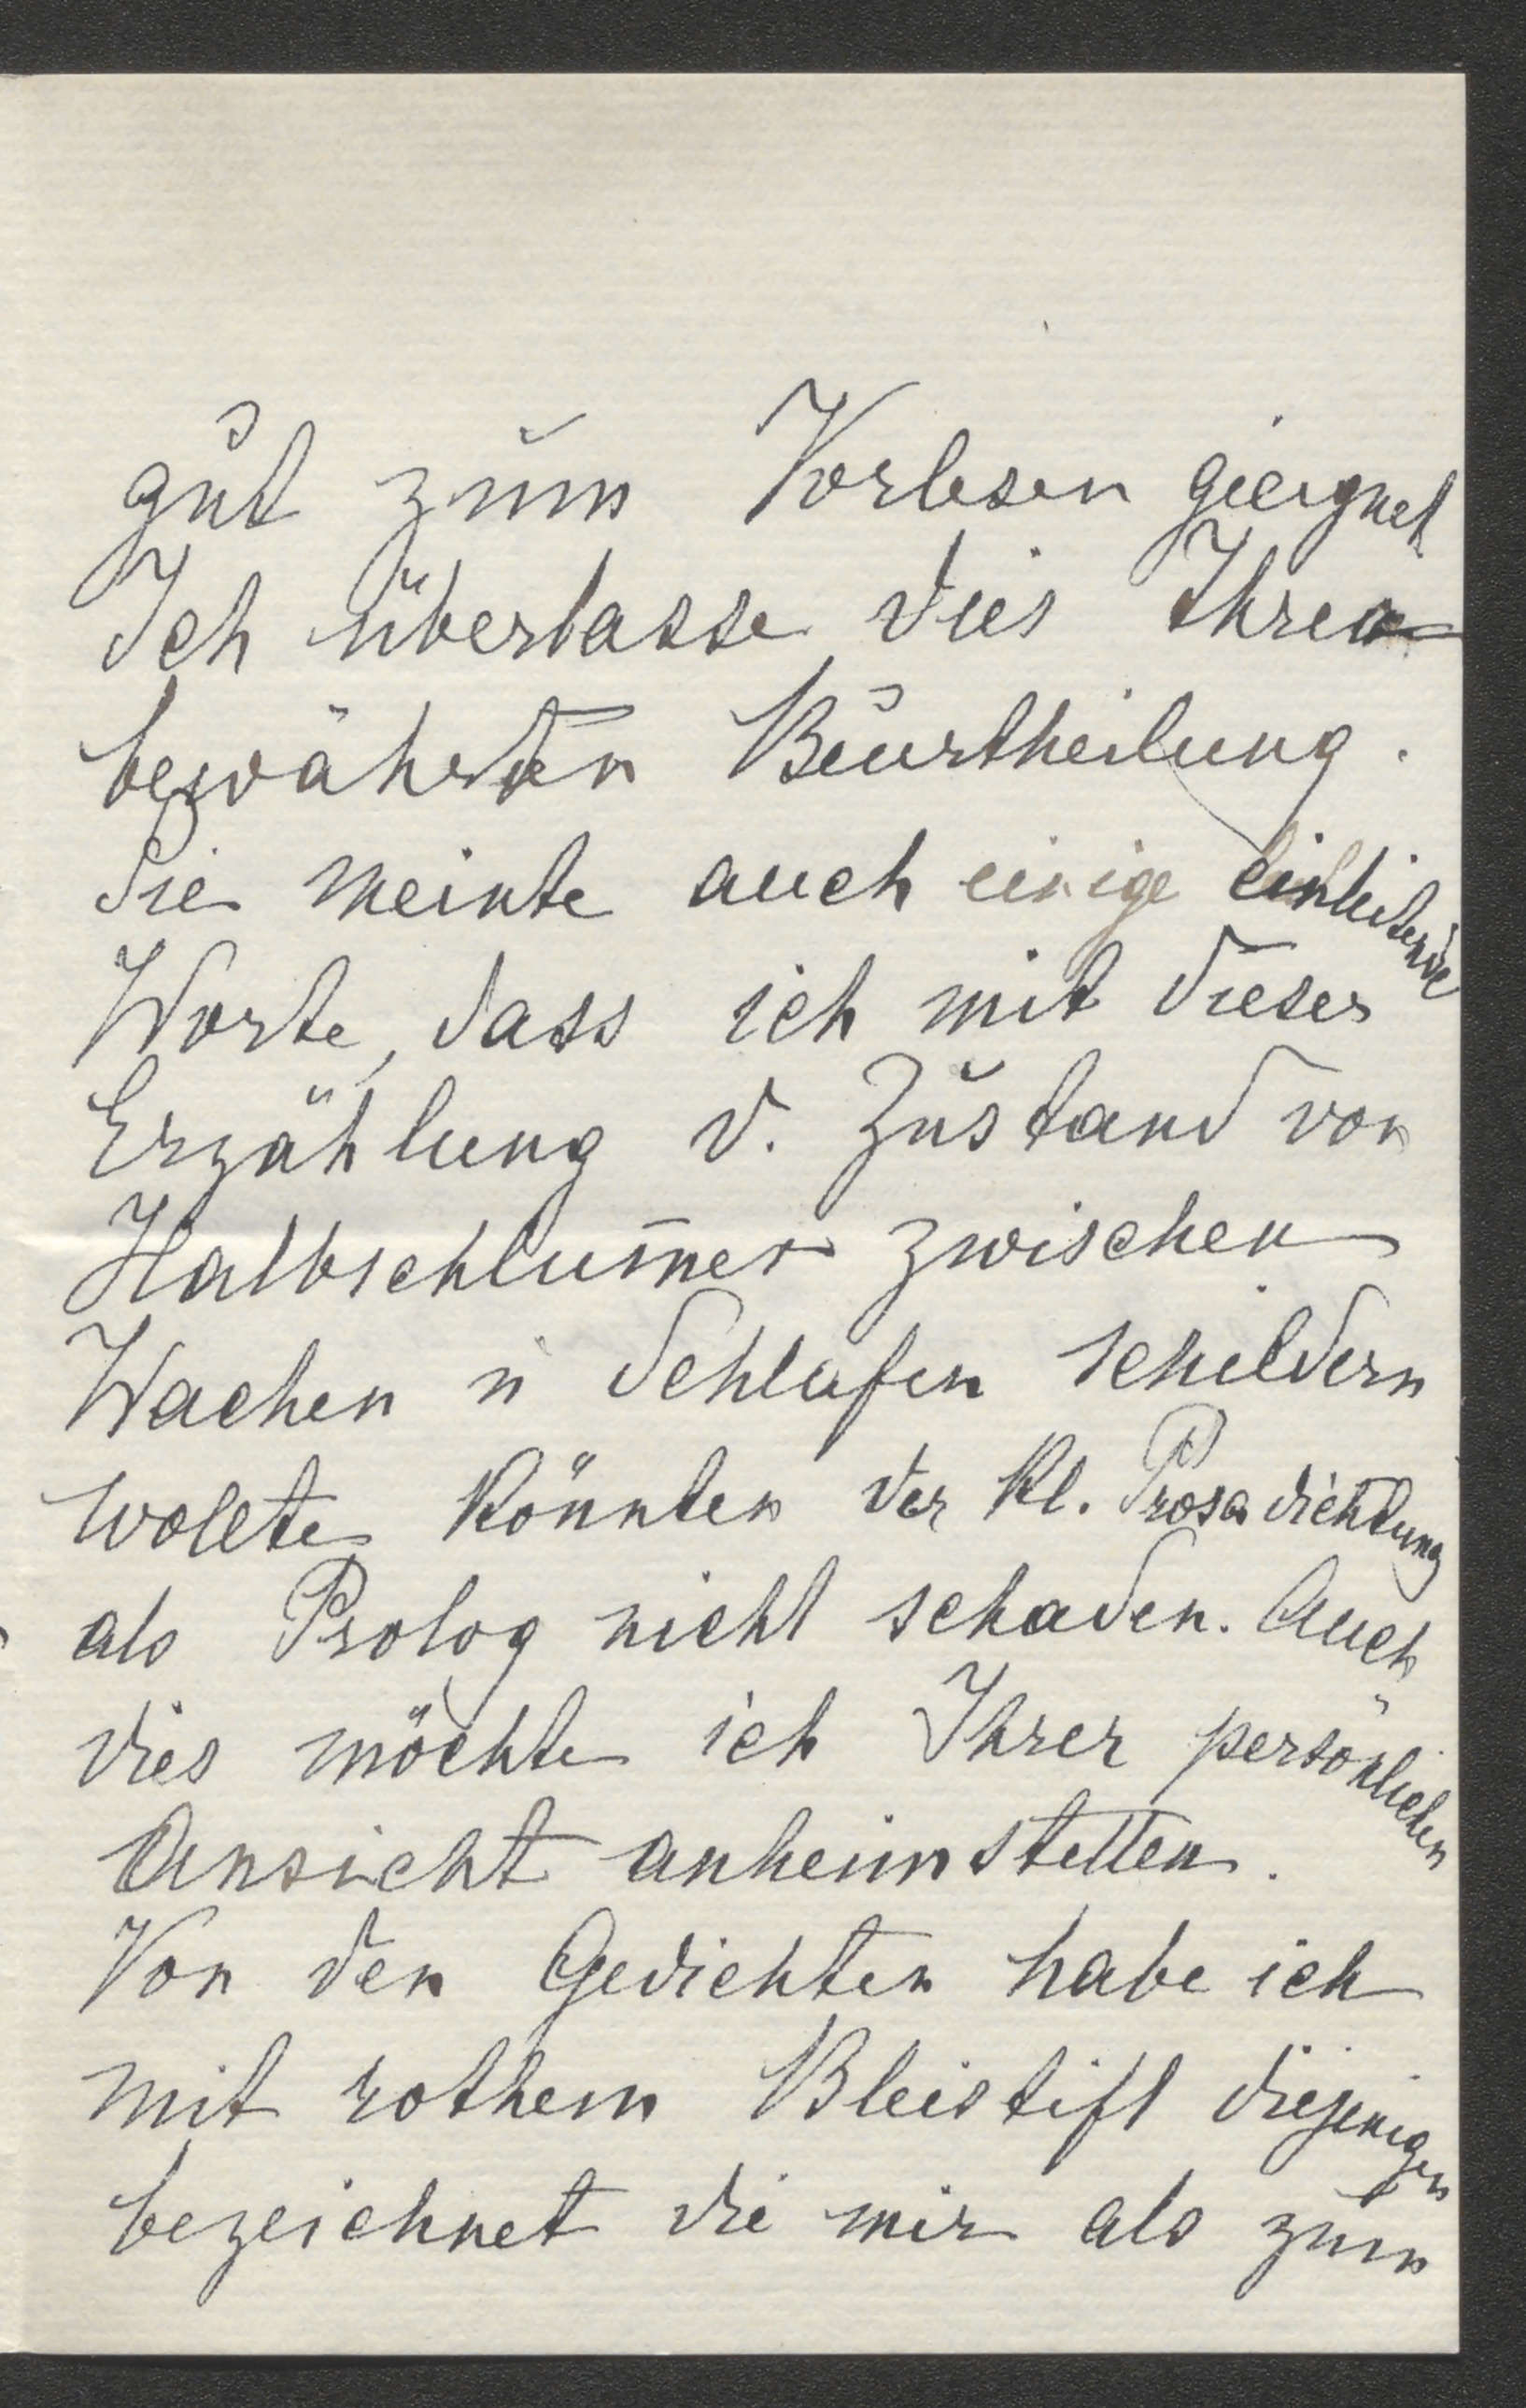 gut zum Vorlesen geeignet
Ich überlasse dies Ihrer
bewährten Beurtheilung.
Sie meinte auch einige einleitende
Worte, dass ich mit dieser
Erzählung d. Zustand von
Halbschlum̄er zwischen
Wachen u Schlafen schildern
wollte könnten der kl. Prosadichtung
als Prolog nicht schaden. Auch
dies möchte ich Ihrer persönlichen
Ansicht anheimstellen.
Von den Gedichten habe ich
mit rothem Bleistift diejenigen
bezeichnet die mir als zum